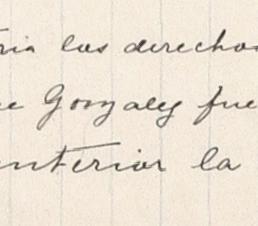 ria los derechos
e Gonzalez fue
anterior la